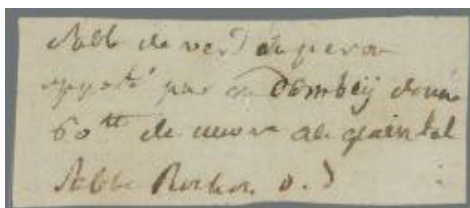 Sable de verd du perou
apporté par m Dombey donne
60 tt de cuivre au quintal
l'abbé Rochon